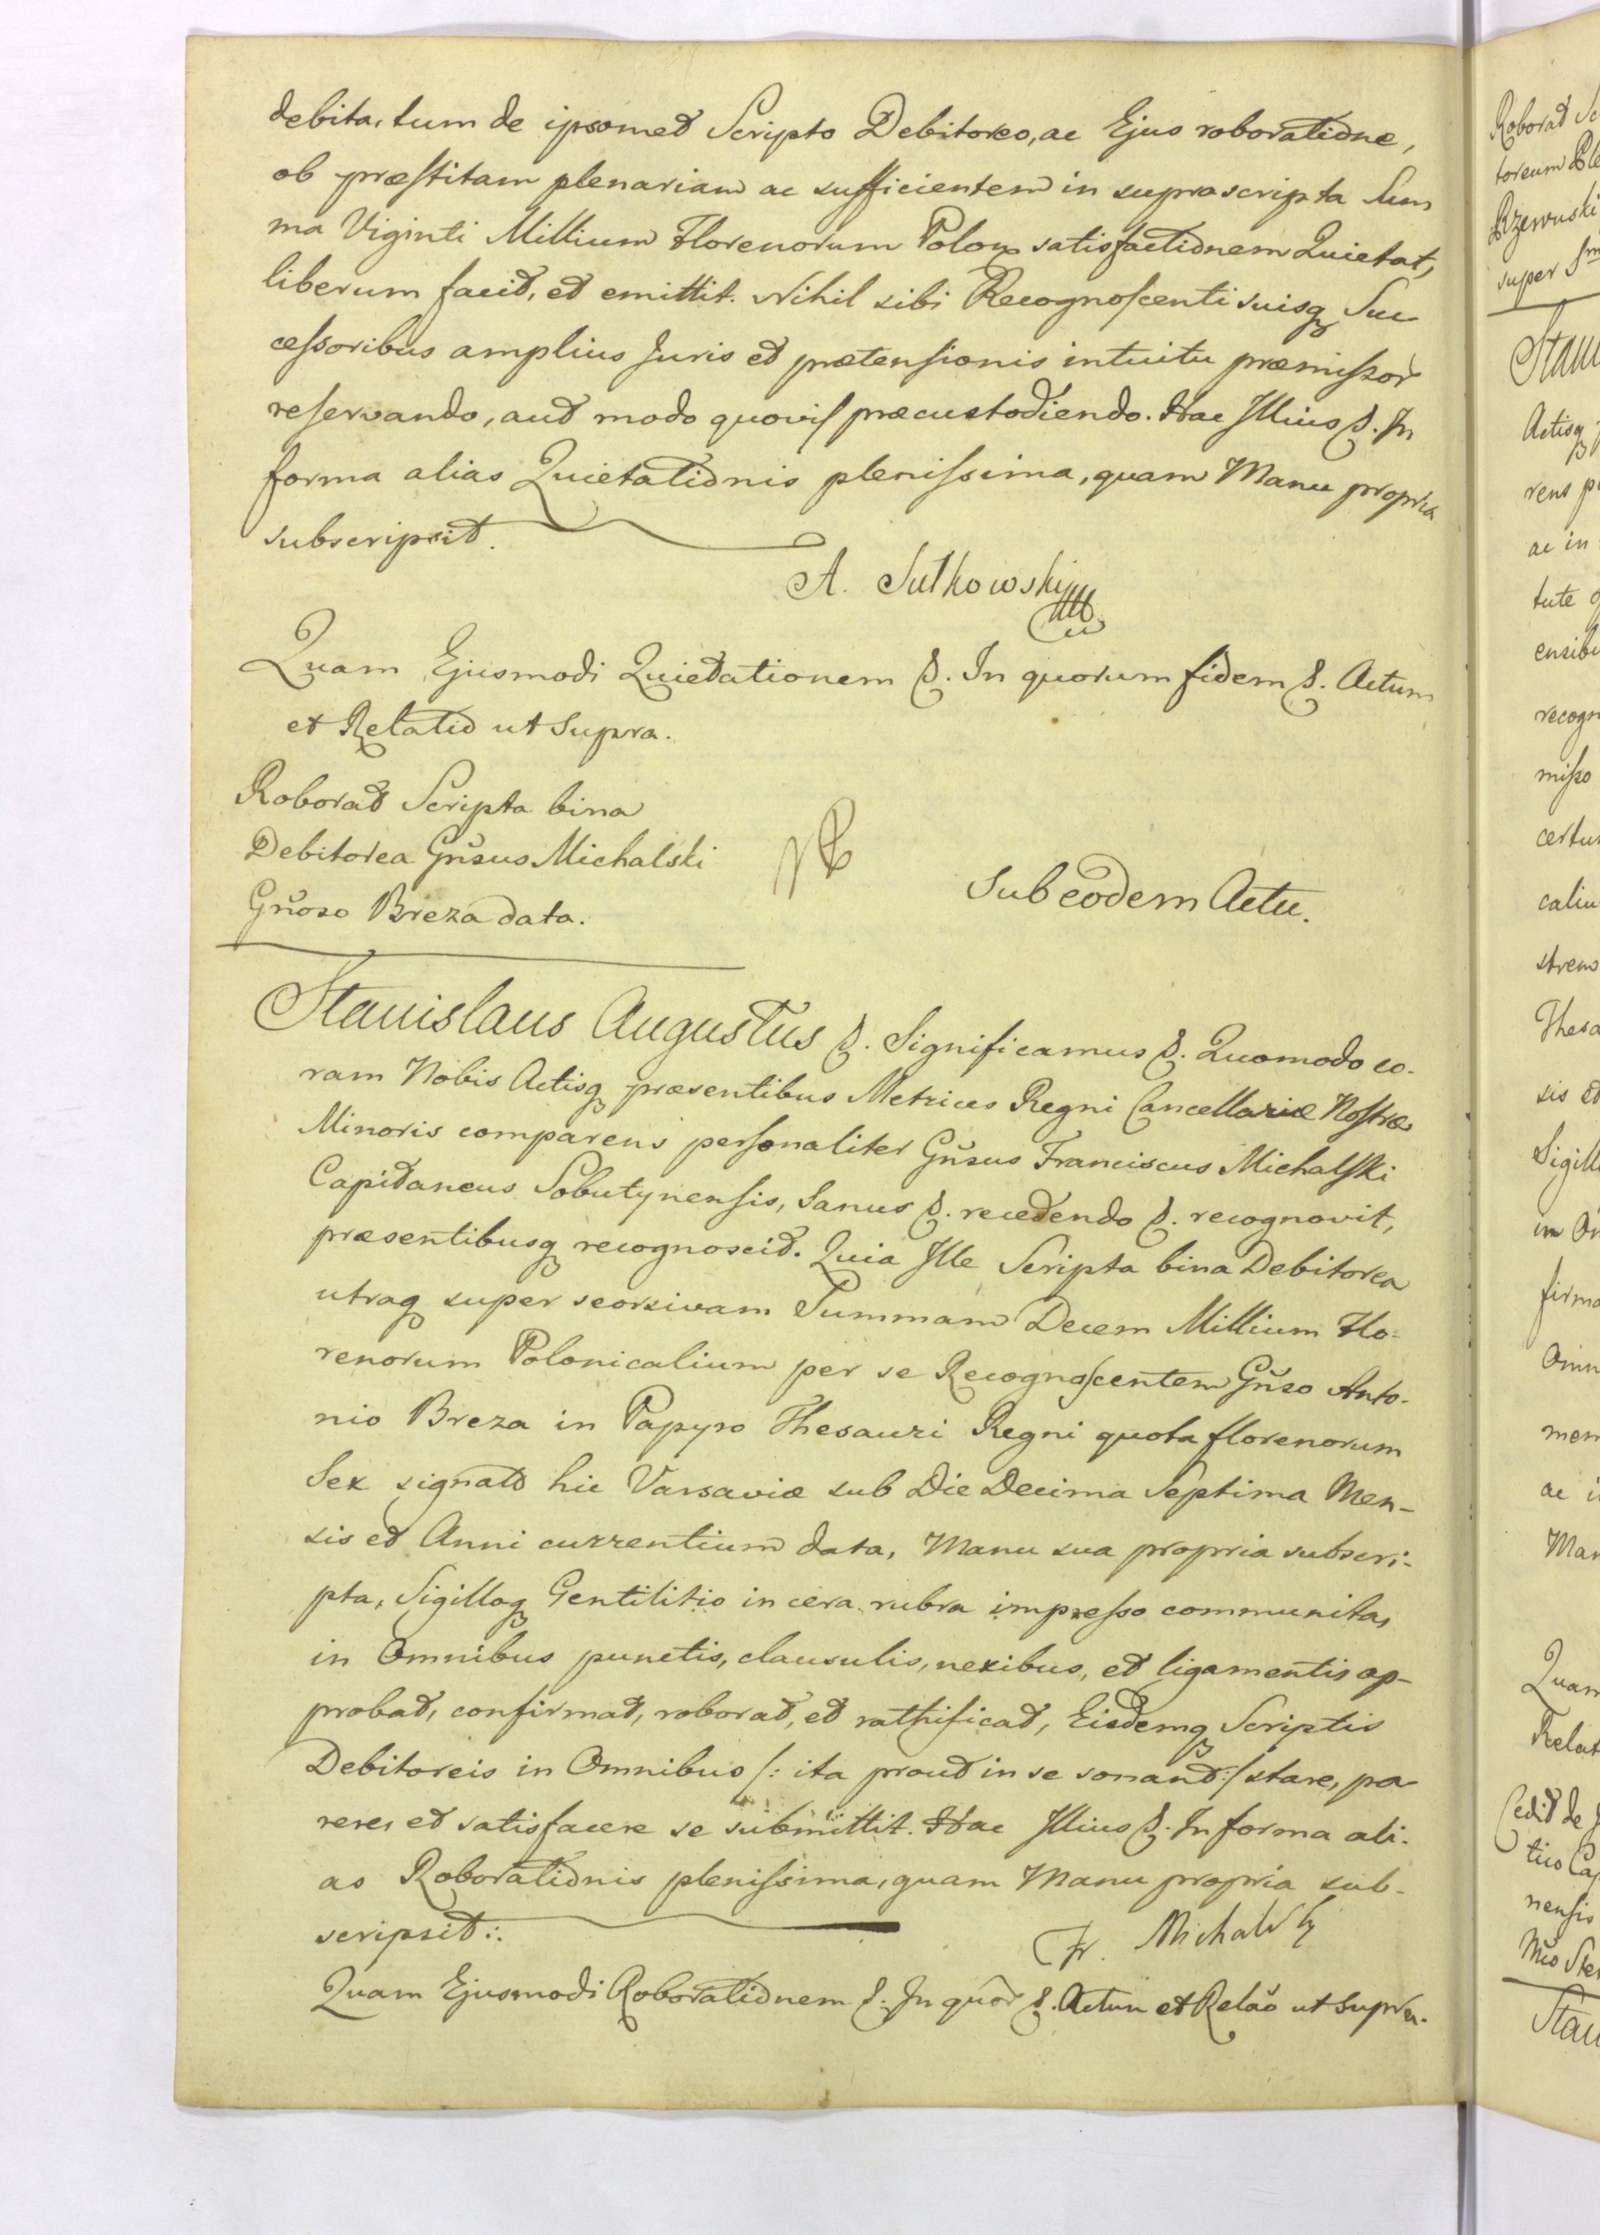 debita, tum de ipsomet Scripto Debitoreo, ac Ejus roboratione,
ob præstitam plenariam ac sufficientem in suprascripta Sum
ma Viginti Millium Florenorum Polon satisfactionem Quietat,
liberum facit, et emittit. Nihil sibi Recognoscenti suisq Suc
cessoribus amplius Juris et prætensionis intuitu præmissor
reservando, aut modo quovis præcustodiendo. Hac Illius &. In
forma alias Quietationis plenissima, quam Manu propria
subscripsit.
A. Sulkowski
Quam Ejusmodi Quietationem &. In quorum fidem &. Actum
et Relatio ut Supra.
Roborat Scripta bina
Debitorea Gñsus Michalski
Gñoso Breza data.
Sub eodem Actu.
Stanislaus Augustus &. Significamus &. Quomodo co-
ram Nobis Actisq præsentibus Metrices Regni Cancellariæ Nostræ
Minoris comparens personaliter Gñsus Franciscus Michalski
Capitaneus Sobutynensis, Sanus &. recedendo &. recognovit,
præsentibusq recognoscit. Quia Ille Scripta bina Debitorea
utraq super seorsivam Summam Decem Millium Flo-
renorum Polonicalium per se Recognoscentem Gñso Anto-
nio Breza in Papyro Thesauri Regni quota florenorum
Sex signato hic Varsaviæ sub Die Decima Septima Men-
sis et Anni currentium data, Manu sua propria subscri-
pta, Sigilloq Gentilitio in cera rubra impresso communita,
in Omnibus punctis, clausulis, nexibus, et ligamentis ap-
probat, confirmat, roborat, et rathificat, Eisdemq Scriptis
Debitoreis in Omnibus /: ita prout in se sonant :/ stare, pa
rere, et satisfacere se submittit. Hac Illius &. In forma ali-
as Roborationis plenissima, quam Manu propria sub-
scripsit:.
Fr. Michalski
Quam Ejusmodi Roborationem &. In quor &. Actum et Relaõ ut Supra.
Roborat
toreum
Rzewuski
super
Actisq
rens
ac in
tute
recogn
certum
Sigill
firma
ac i
Man
Quam
Relat
Cedit de
nensis